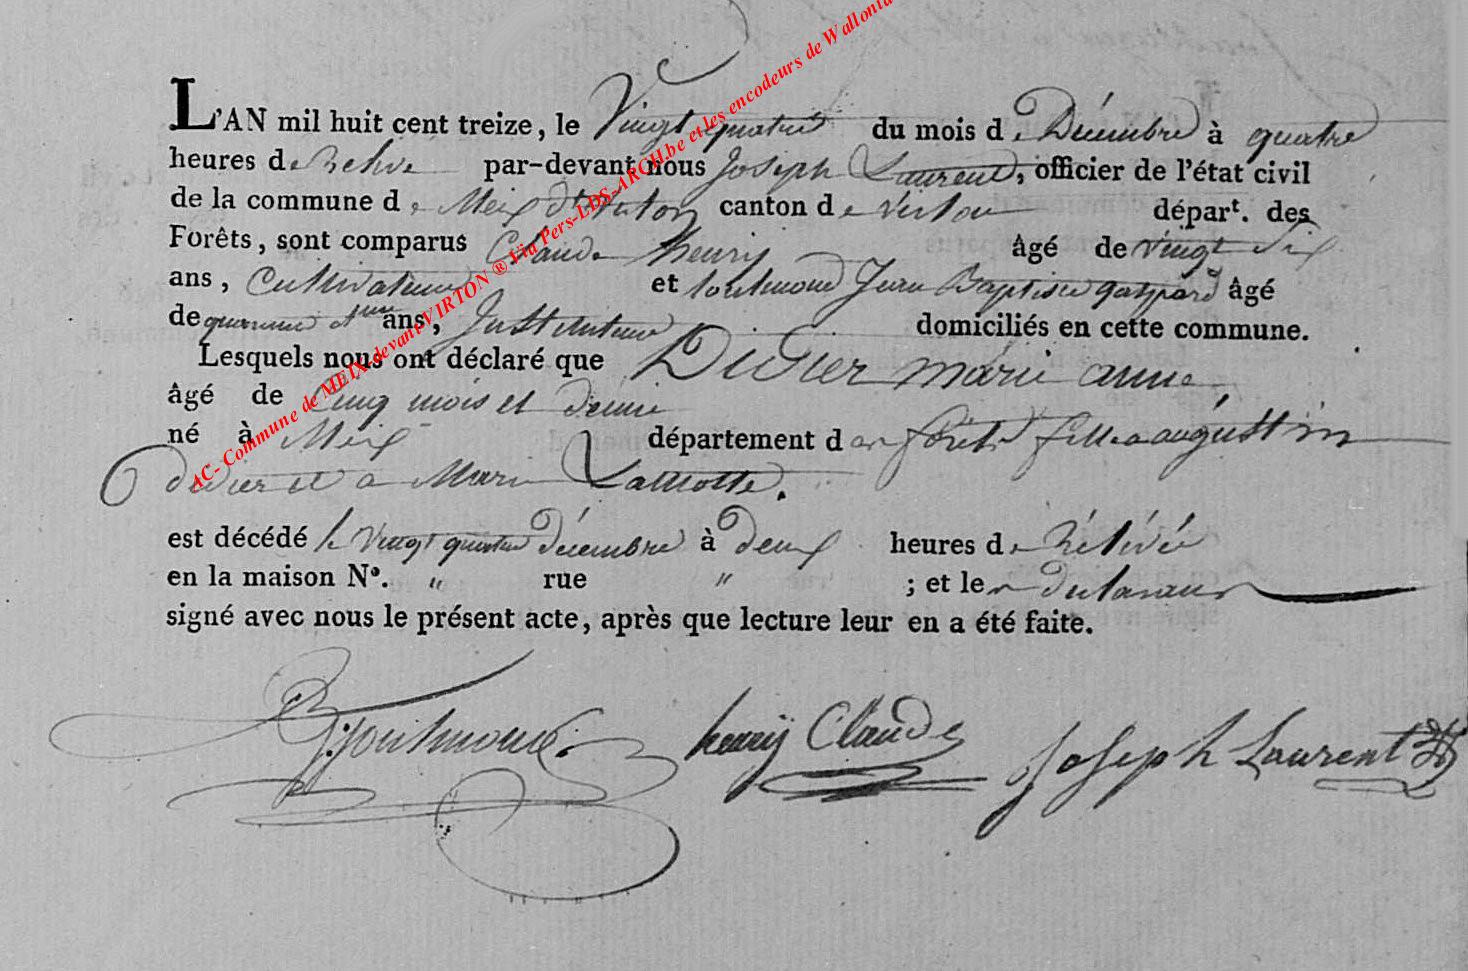 L'AN mil huit cent treize, le Vingt quatre du mois de Décembre à quatre
heures de relivé par-devant nous Joseph Laurent, officier de l'état civil
de la commune de Meix dt virton canton de virton départ. des
Forêts, sont comparus Claude henry âgé de vingt six
ans, Cultivateur et toutmond Jean Baptiste gaspard âgé
de quarante et un ans, Instituteur domiciliés en cette commune.
Lesquels nous ont déclaré que Didier marie anne
âgé de Cinq mois et demie
né à Meix département des forêts fille a augustin
didier et a Marie Lamotte.
est décédé le vingt quatre décembre à deux heures de rélivée
en la maison N°. " rue " ; et les declarans
signé avec nous le présent acte, après que lecture leur en a été faite.
henry Claude Joseph Laurent
AC- Commune de MEIX-devant-VIRTON ® Via Pers-LDS-ARCH.be et les encodeurs de Wallonia